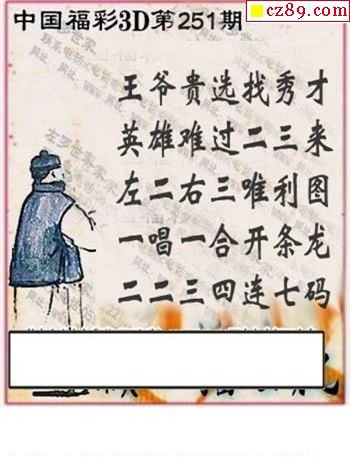 cz89.com
中国福彩3D第251期
王爷贵选找秀才
英雄难过二三来
左二右三唯利图
一唱一合开条龙
二二三四连七码